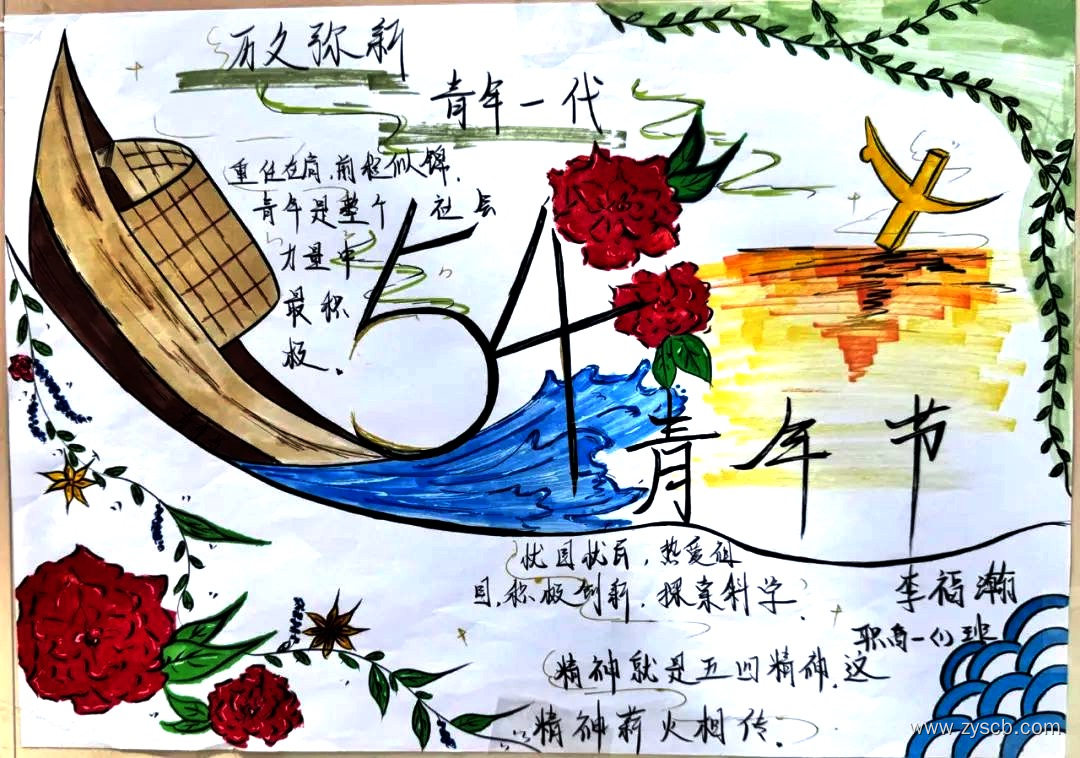 历久弥新
青年一代
重任在肩,前程似锦,
青年是整个社会
力量中
最积
极。
54
青年节
忧国忧民,热爱祖
国,积极创新,探索科学
精神就是五四精神,这
精神薪火相传。
李福瀚
职高一(1)班
www.zyscb.com